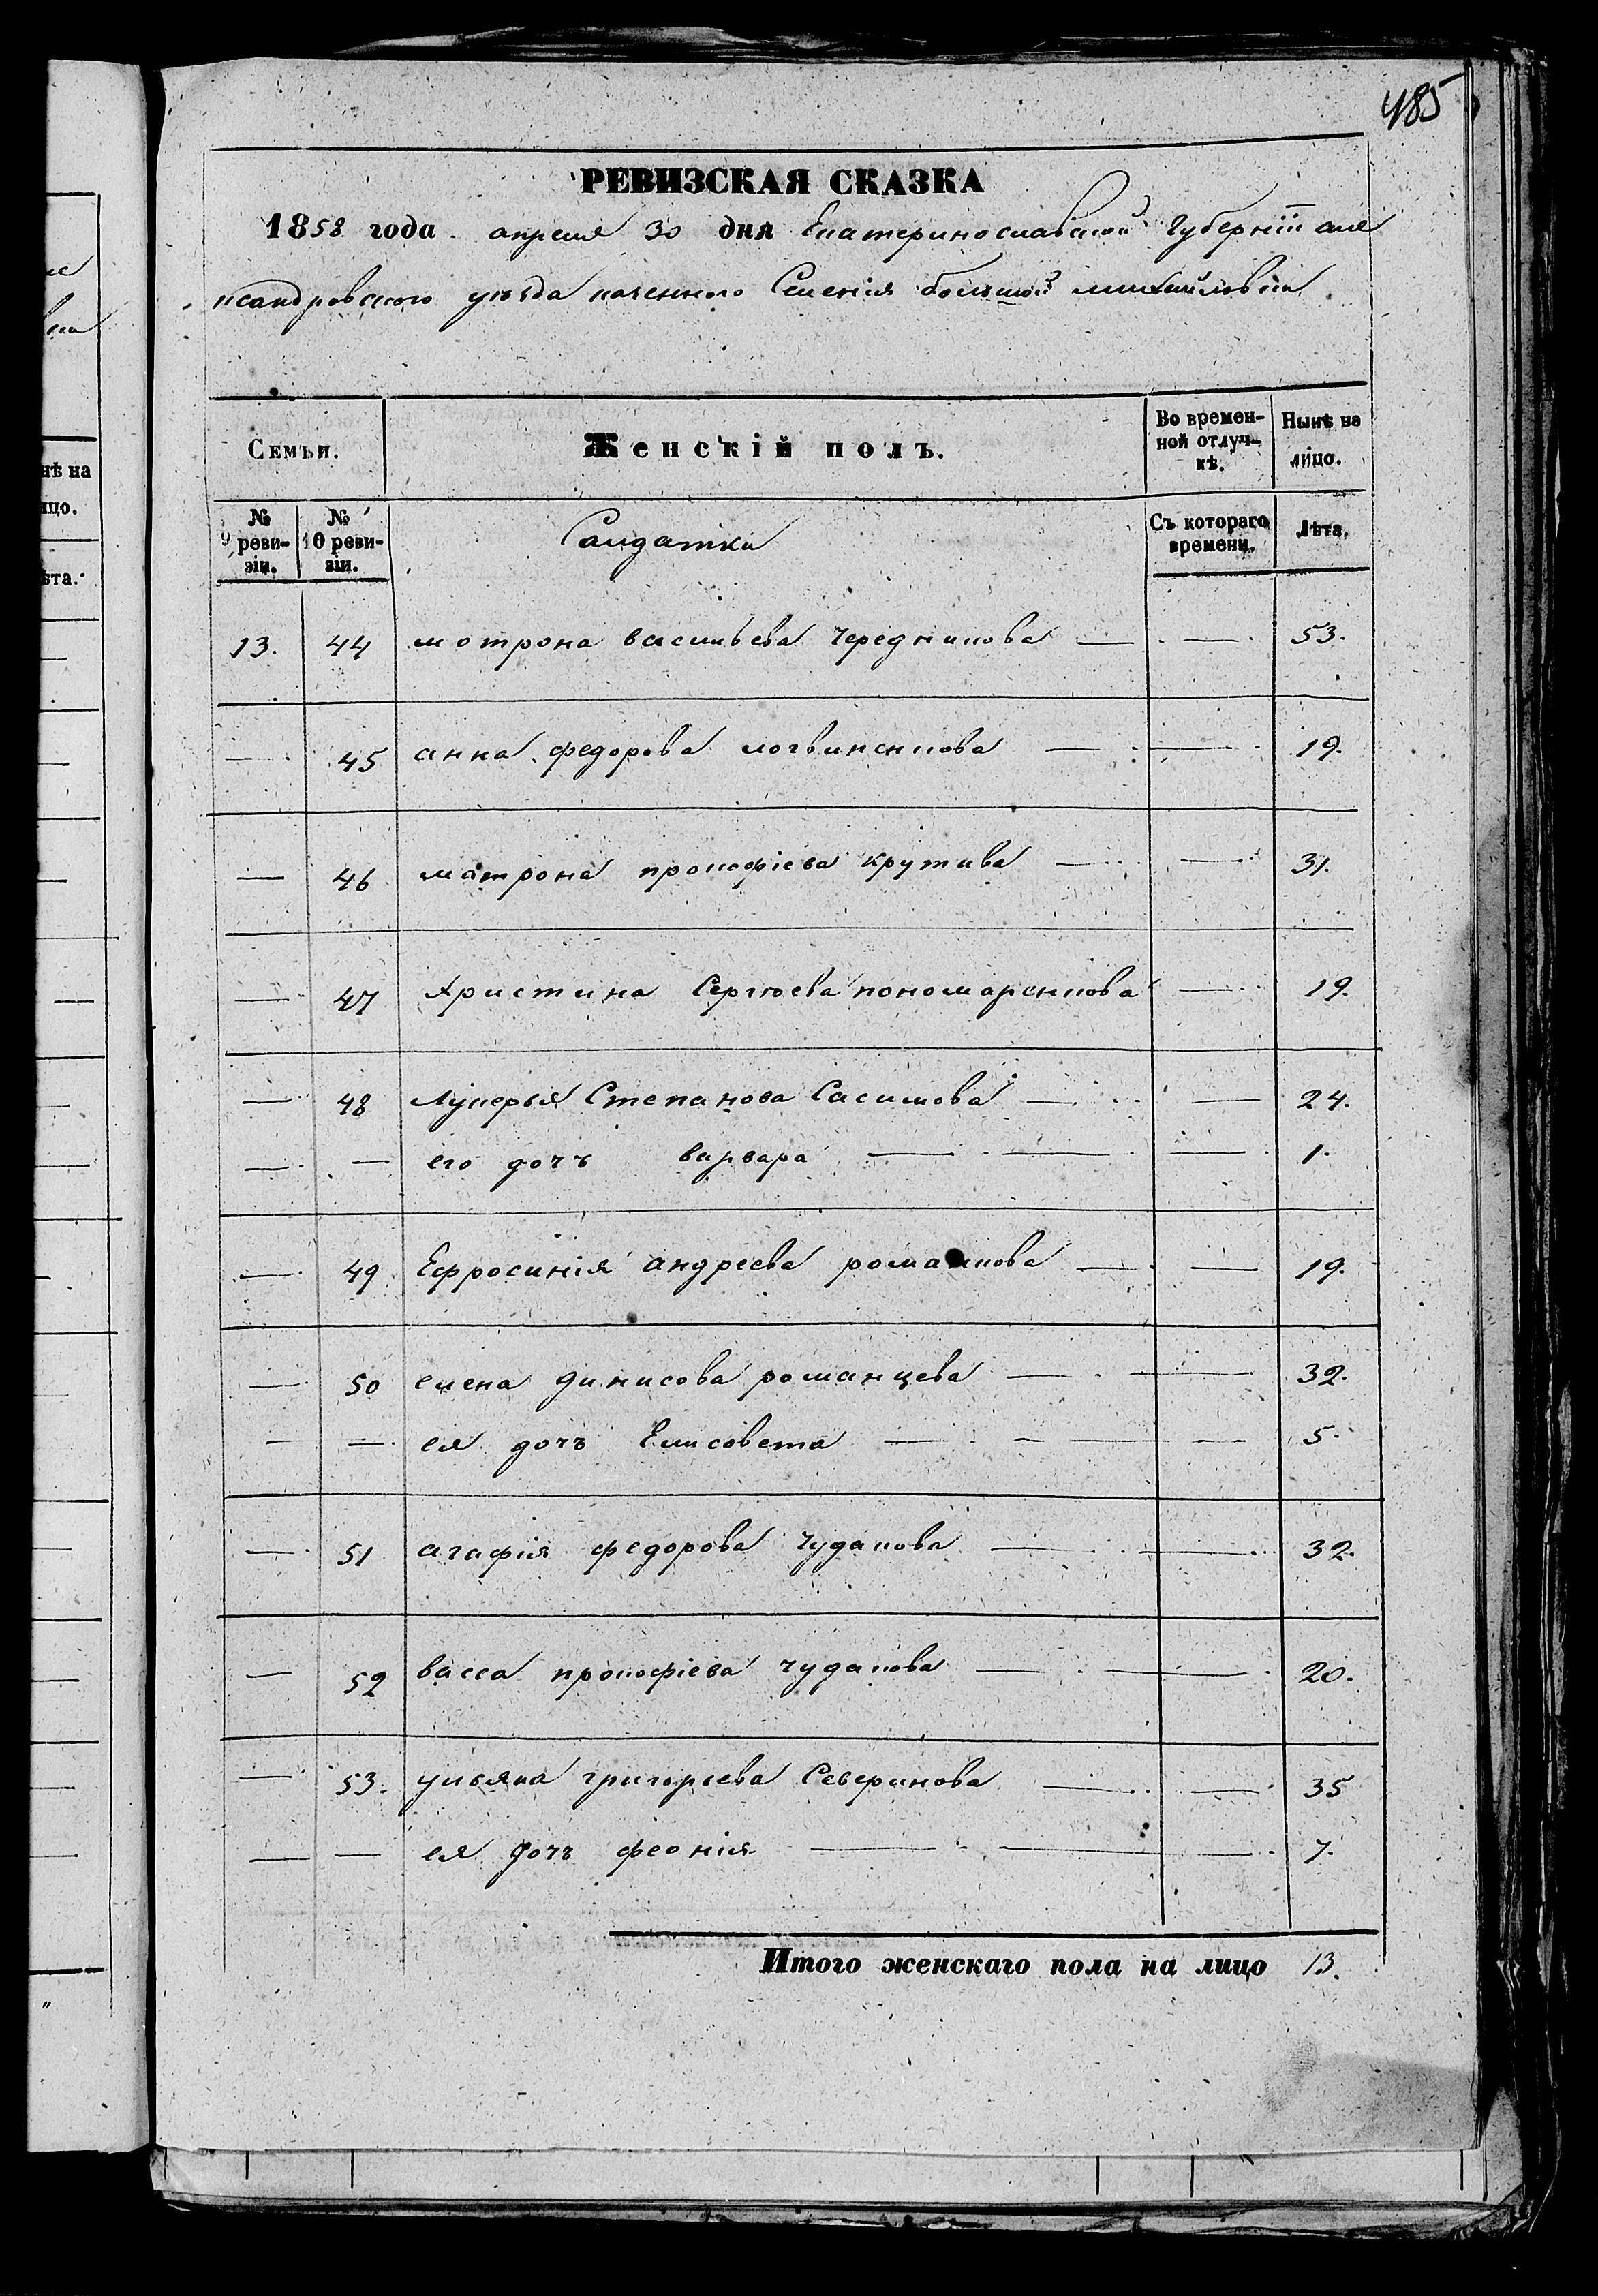 485
РЕВИЗСКАЯ СКАЗКА
1858 года апреля 30 дня Екатеринославской Губерніи але
ксандровского уезда казенного Селенія большой михайловки
Семьи. Женскій полъ. Во времен-ной отлуч-кѣ. Нынѣ на лицо.
№ 9 реви-зіи. № 10 реви-зіи. Салдатки Съ котораго времени. Лѣта.
13. 44 мотрона васильева Чередникова — — 53.
— 45 анна федорова логвиненкова — — 19.
— 46 матрона прокофіева крутива — — 31.
— 47 Христина Сергюева пономаренкова — 19.
— 48 Лукерья Степанова Сасимова — — 24.
— — его дочь варвара — — — 1.
— 49 Ефросинія андреева романкова — — 19.
— 50 елена динисова романцева — — 32.
— — ея дочь Елисовета — — — — 5.
— 51 агафія федорова Чудакова — — 32.
— 52 васса прокофіева чудакова — — 20.
— 53. ульяна григорьева Северинова — — 35
— — ея дочь феонія — — — 7.
Итого женскаго пола на лицо 13.
нѣ на
ицо.
ѣта.